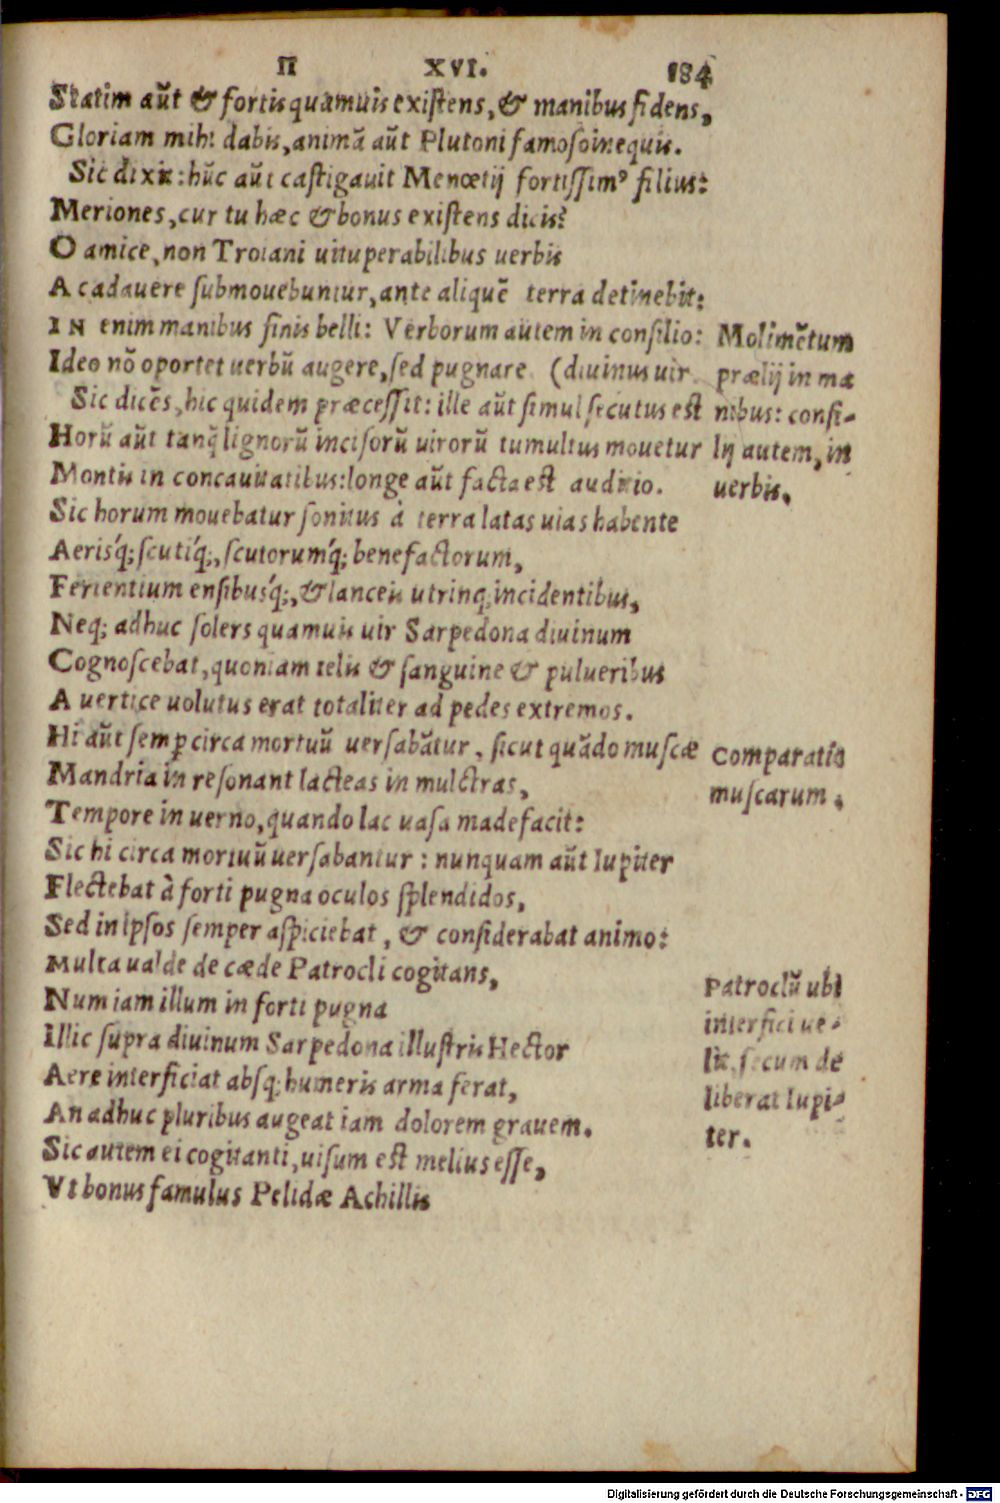 Π XVI. 184
Statim aũt & fortis quamuis existens, & manibus fidens,
Gloriam mihi dabis, animã aũt Plutoni famoso in equis.
Sic dixit: hũc aũt castigauit Menœtij fortissimꝰ filius:
Meriones, cur tu hæc & bonus existens dicis?
O amice, non Troiani uituperabilibus uerbis
A cadauere submouebuntur, ante aliquẽ terra detinebit:
IN enim manibus finis belli: Verborum autem in consilio:
Ideo nõ oportet uerbũ augere, sed pugnare (diuinus uir.
Sic dicẽs, hic quidem præcessit: ille aũt simul secutus est
Horũ aũt tanq̃ lignorũ incisorũ uirorũ tumultus mouetur
Montis in concauitatibus: longe aũt facta est auditio.
Sic horum mouebatur sonitus à terra latas uias habente
Aerisq́;, scutiq́;, scutorumq́; benefactorum,
Ferientium ensibusq́;, & lanceis utrinq; incidentibus,
Neq; adhuc solers quamuis uir Sarpedona diuinum
Cognoscebat, quoniam telis & sanguine & pulueribus
A uertice uolutus erat totaliter ad pedes extremos.
Hi aũt semꝑ circa mortuũ uersabãtur, sicut quãdo muscæ
Mandria in resonant lacteas in mulctras,
Tempore in uerno, quando lac uasa madefacit:
Sic hi circa mortuũ uersabantur: nunquam aũt Iupiter
Flectebat à forti pugna oculos splendidos,
Sed in ipsos semper aspiciebat, & considerabat animo:
Multa ualde de cæde Patrocli cogitans,
Num iam illum in forti pugna
Illic supra diuinum Sarpedona illustris Hector
Aere interficiat absq; humeris arma ferat,
An adhuc pluribus augeat iam dolorem grauem.
Sic autem ei cogitanti, uisum est melius esse,
Vt bonus famulus Pelidæ Achillis
Molimẽtum
prælij in ma
nibus: consi-
lij autem, in
uerbis.
Comparatio
muscarum.
Patroclũ ubi
interfici ue-
lit, secum de
liberat Iupi-
ter.
Digitalisierung gefördert durch die Deutsche Forschungsgemeinschaft - DFG